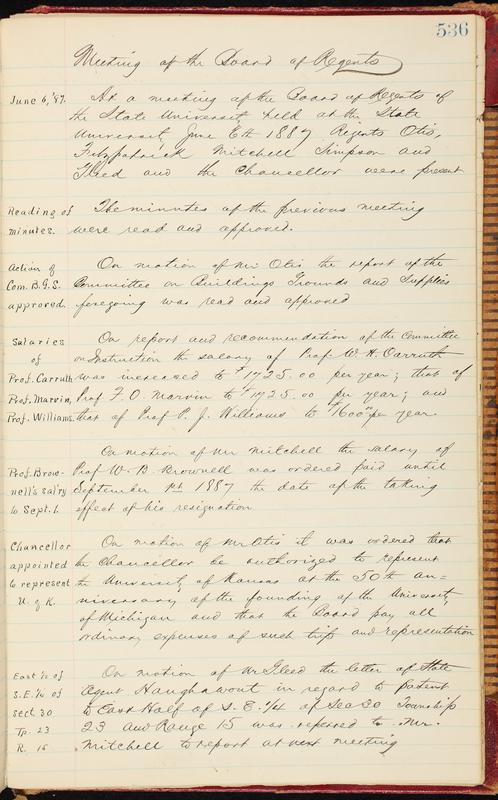 536
Meeting of the Board of Regents
June 6, '87. At a meeting of the Board of Regents of
the State University held at the State
University June 6th 1887 Regents Otis,
Fitzpatrick Mitchell Simpson and
Gleed and the Chancellor were present
Reading of The minutes of the previous meeting
minutes. were read and approved.
Action of On motion of Mr Otis the report of the
Com. B.G.S. Committee on Buildings Grounds and Supplies
approved. foregoing was read and approved
Salaries On report and recommendation of the Committee
of on Instruction the salary of Prof W. H. Carruth
Prof. Carruth was increased to $1725.00 per year; that of
Prof. Marvin, Prof F. O. Marvin to $1725.00 per year; and
Prof. Williams that of Prof P. J. Williams to $1600 per year.
On motion of Mr Mitchell the salary of
Prof. Brow- Prof W. B. Brownell was ordered paid until
nell's sal'ry September 1st 1887 the date of the taking
to Sept. 1. effect of his resignation
Chancellor On motion of Mr Otis it was ordered that
appointed the Chancellor be authorized to represent
to represent the University of Kansas at the 50th an-
U. of K. niversary of the founding of the University
of Michigan and that the Board pay all
ordinary expenses of such trip and representation
East ½ of On motion of Mr Gleed the letter of State
S.E. ¼ of Agent Haughawout in regard to patent
sect 30 to East Half of S. E. ¼ of Sec 30 Township
Tp. 23 23 and Range 15 was referred to Mr.
R. 15 Mitchell to report at next meeting